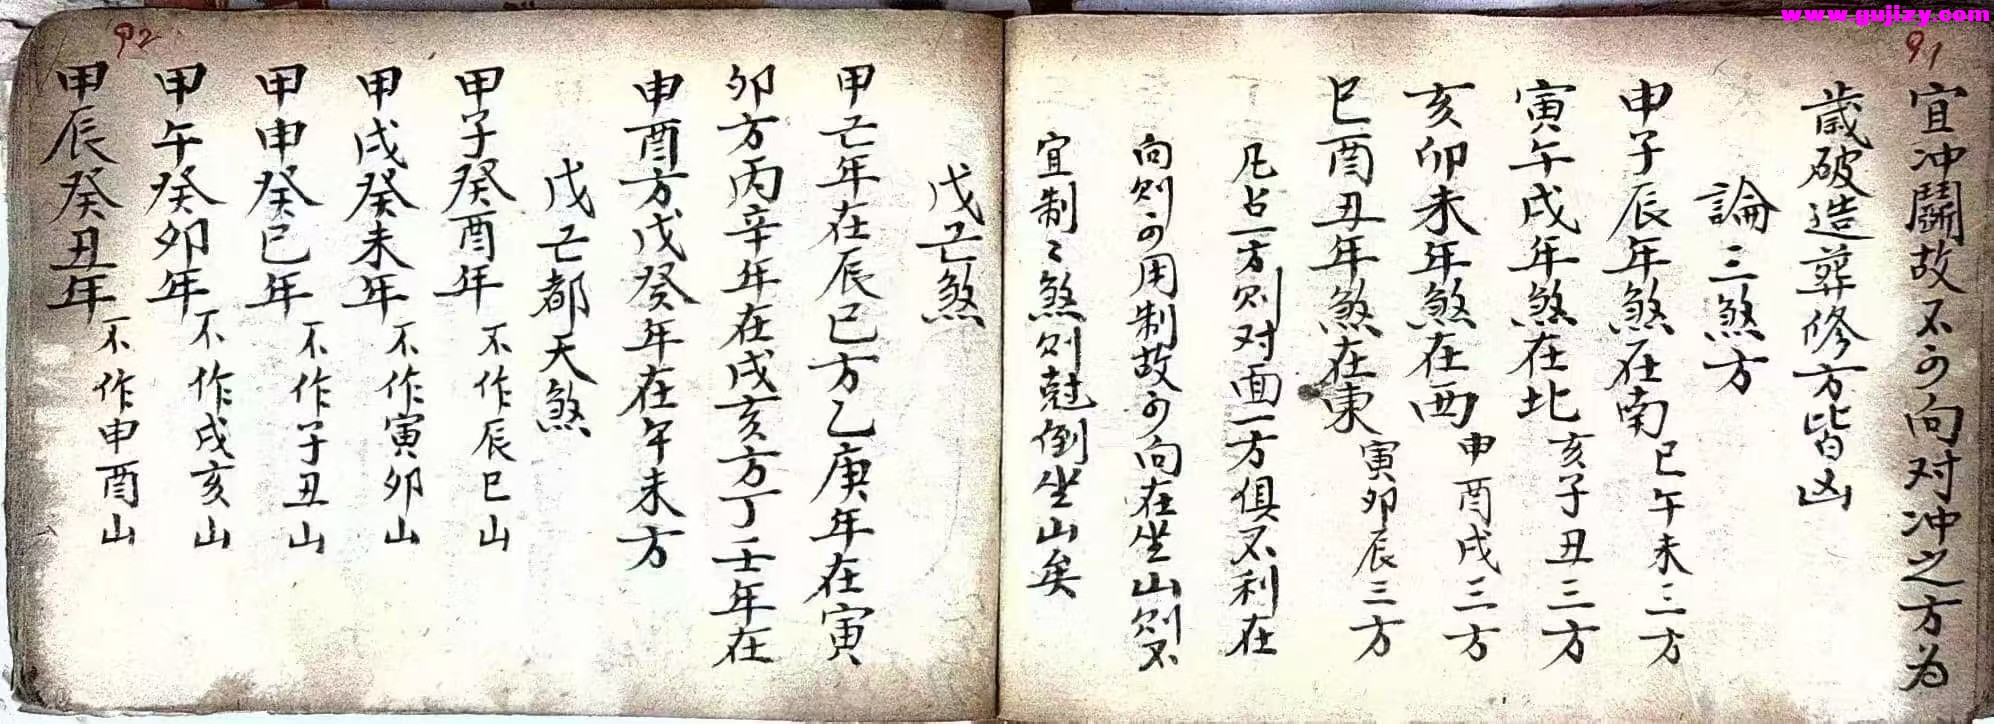 www.gujizy.com
91
宜冲鬭故不可向对冲之方为
歲破造葬修方皆凶
論三煞方
申子辰年煞在南巳午未三方
寅午戌年煞在北亥子丑三方
亥卯未年煞在西申酉戌三方
巳酉丑年煞在東寅卯辰三方
凡占一方则对面一方俱不利在
向则可用制故可向在坐山则不
宜制〻煞则尅倒坐山矣
92
戊己煞
甲己年在辰巳方乙庚年在寅
卯方丙辛年在戌亥方丁壬年在
申酉方戊癸年在午未方
戊己都天煞
甲子癸酉年不作辰巳山
甲戌癸未年不作寅卯山
甲申癸巳年不作子丑山
甲午癸卯年不作戌亥山
甲辰癸丑年不作申酉山